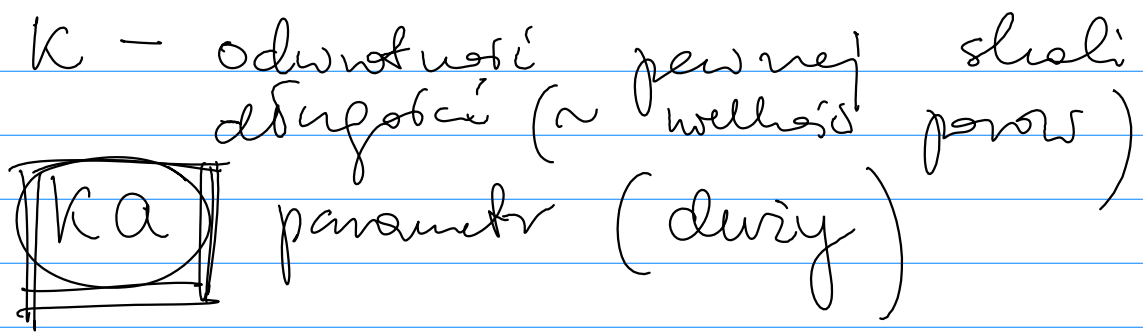 K – odwrotność pewnej skali
długości (~ wielkość porów)
Ka parametr (duży)